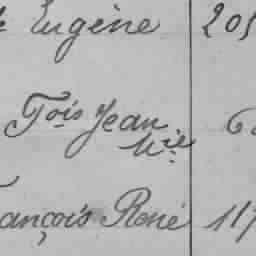 Eugène 205
Fois Jean 6
Mie
ançois René 117